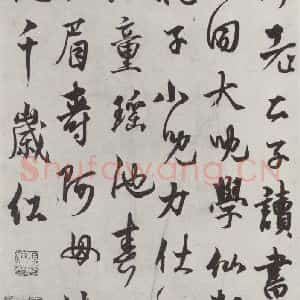 老士子讀書
同大兒學仙
子小兒力仕
童瑤池春
眉壽阿母
千歲紅
Shufawang.CN